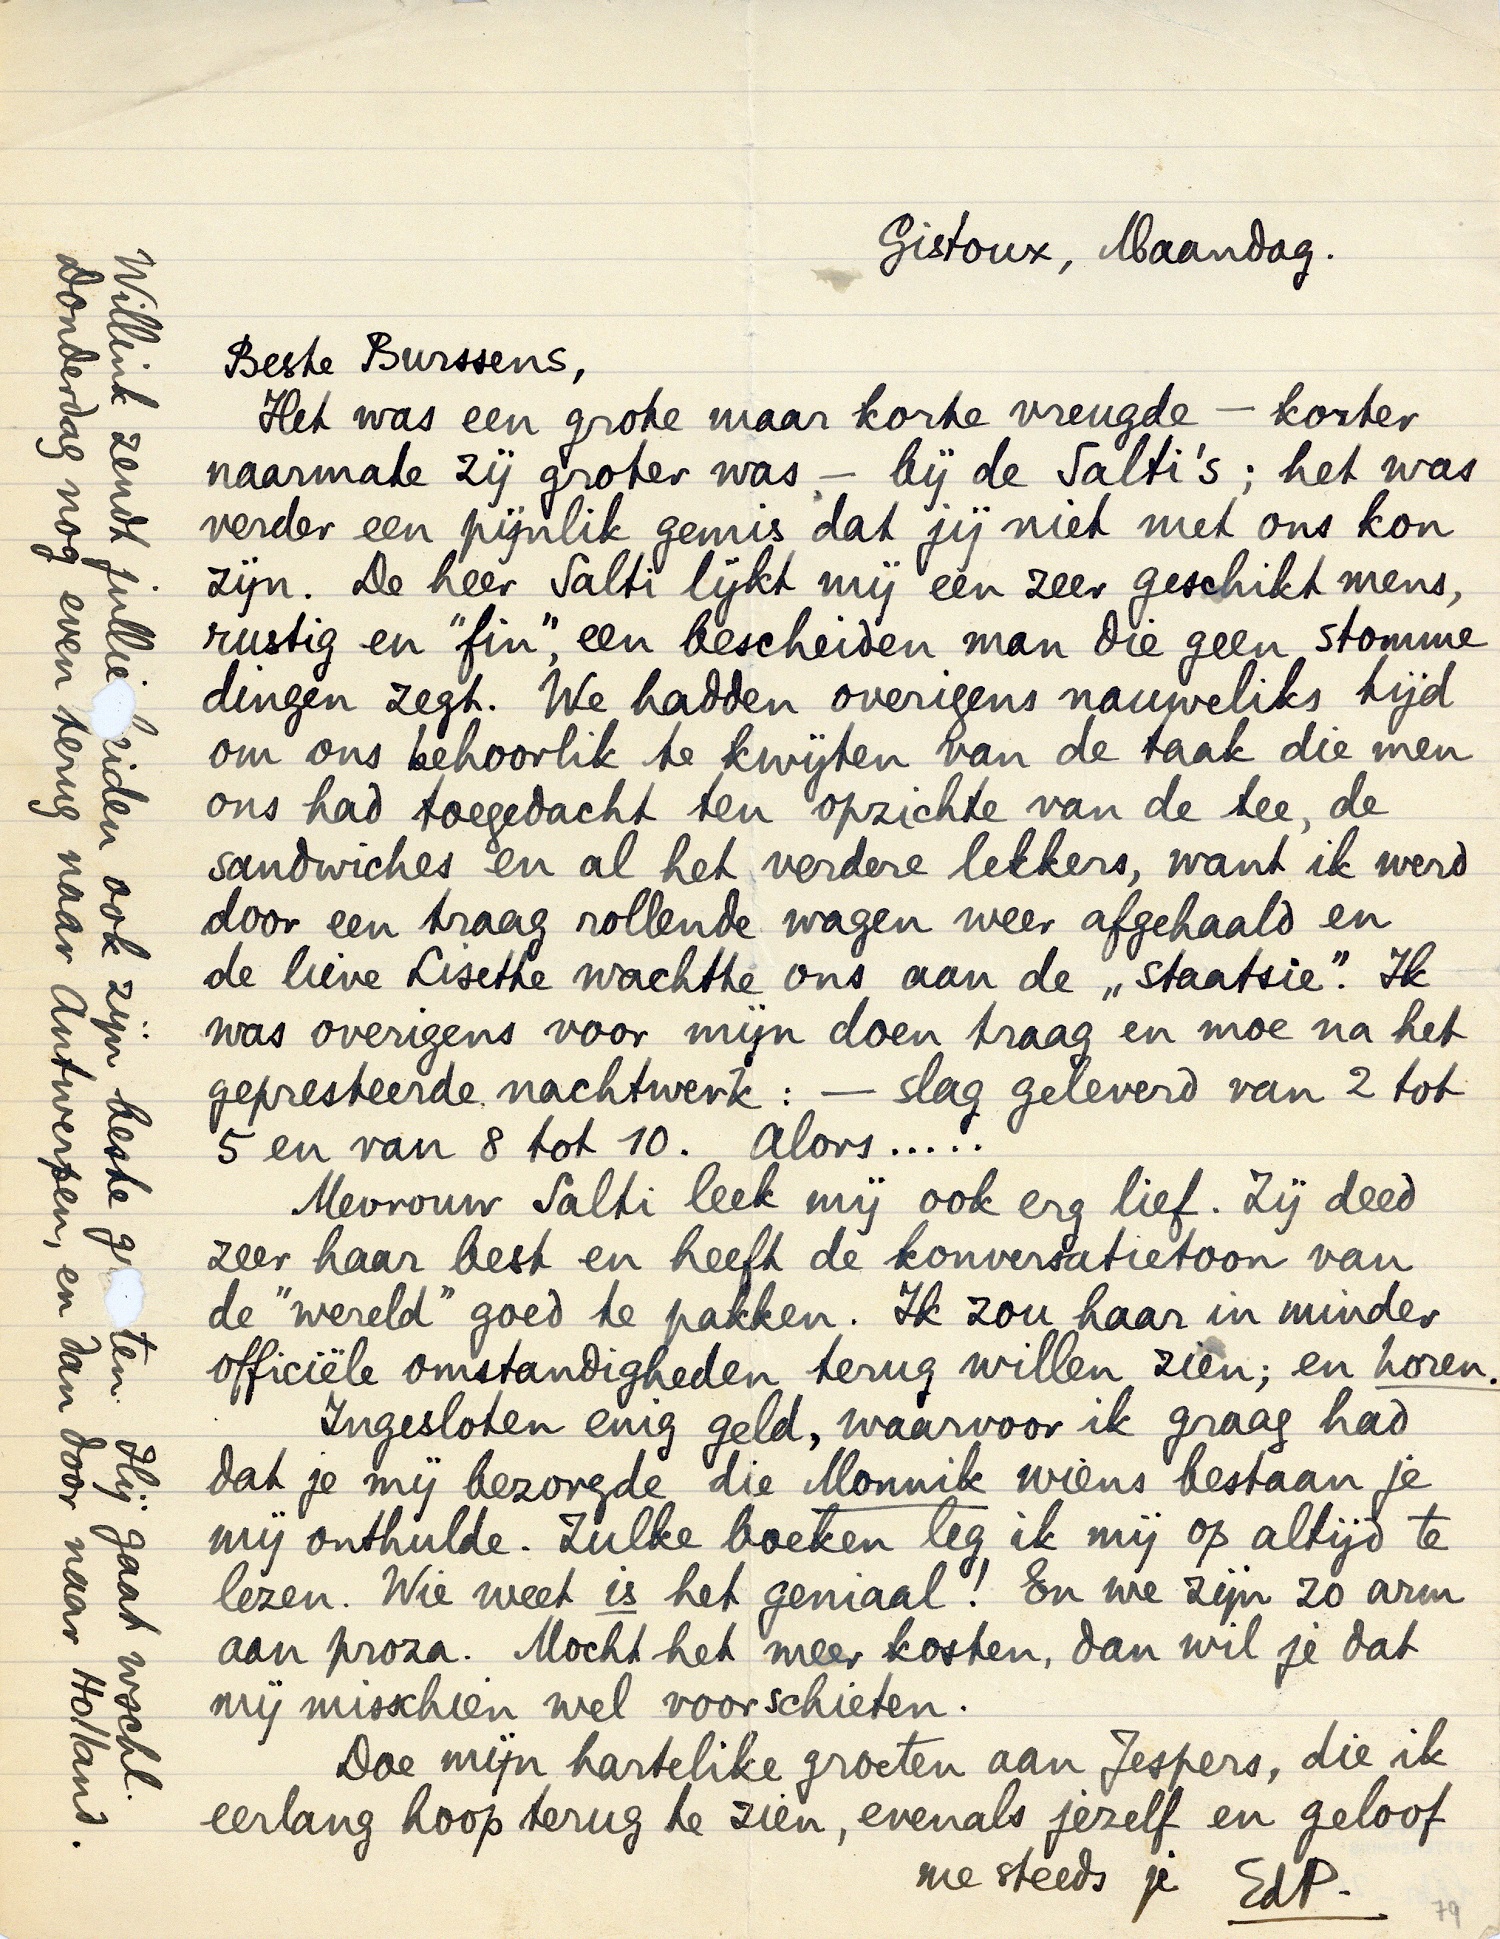 Gistoux, Maandag.
Beste Burssens,
Het was een grote maar korte vreugde — korter
naarmate zij groter was — bij de Salti's ; het was
verder een pijnlik gemis dat jij niet met ons kon
zijn. De heer Salti lijkt mij een zeer geschikt mens,
rustig en "fin", een bescheiden man die geen stomme
dingen zegt. We hadden overigens nauweliks tijd
om ons behoorlik te kwijten van de taak die men
ons had toegedacht ten opzichte van de tee, de
sandwiches en al het verdere lekkers, want ik werd
door een traag rollende wagen weer afgehaald en
de lieve Lisette wachtte ons aan de „staatsie". Ik
was overigens voor mijn doen traag en moe na het
gepresteerde nachtwerk : — slag geleverd van 2 tot
5 en van 8 tot 10. Alors.....
Mevrouw Salti leek mij ook erg lief. Zij deed
zeer haar best en heeft de konversatietoon van
de "wereld" goed te pakken. Ik zou haar in minder
officiële omstandigheden terug willen zien; en horen.
Ingesloten enig geld, waarvoor ik graag had
dat je mij bezorgde die Monnik wiens bestaan je
mij onthulde. Zulke boeken leg ik mij op altijd te
lezen. Wie weet is het geniaal! En we zijn zo arm
aan proza. Mocht het meer kosten, dan wil je dat
mij misschien wel voorschieten.
Doe mijn hartelike groeten aan Jespers, die ik
eerlang hoop terug te zien, evenals jezelf en geloof
me steeds je EdP.
79
Willink zendt jullie eiden ook zijn beste g ten. Hij gaat wschl.
Donderdag nog even terug naar Antwerpen, en dan door naar Holland.